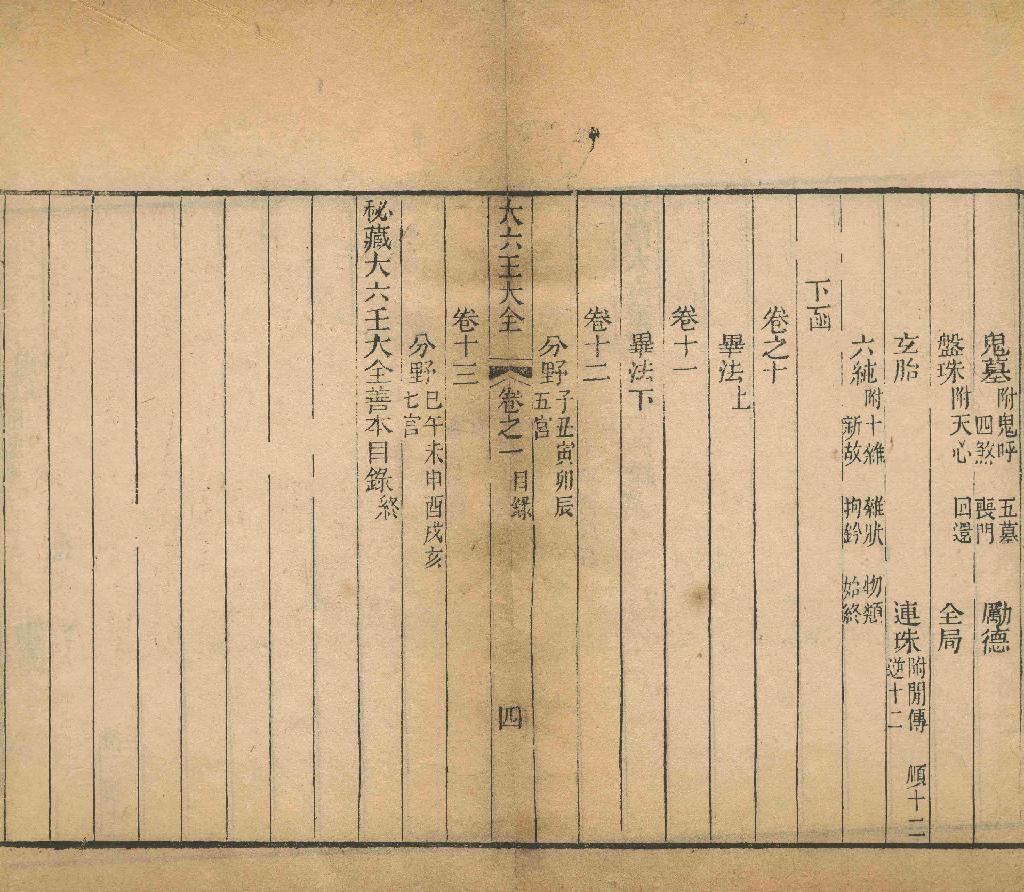 鬼墓附鬼呼 四煞 五墓 喪門 勵德
盤珠附天心 回還 全局
玄胎 連珠附間傳 順十二 逆十二
六純附十雜 新故 雜狀 拘鈐 物類 始終
下凾
卷之十
畢法上
卷十一
畢法下
卷十二
分野子丑寅卯辰五宮
大六壬大全 卷之一 目錄 四
卷十三
分野巳午未申酉戌亥七宮
秘藏大六壬大全善本目錄終